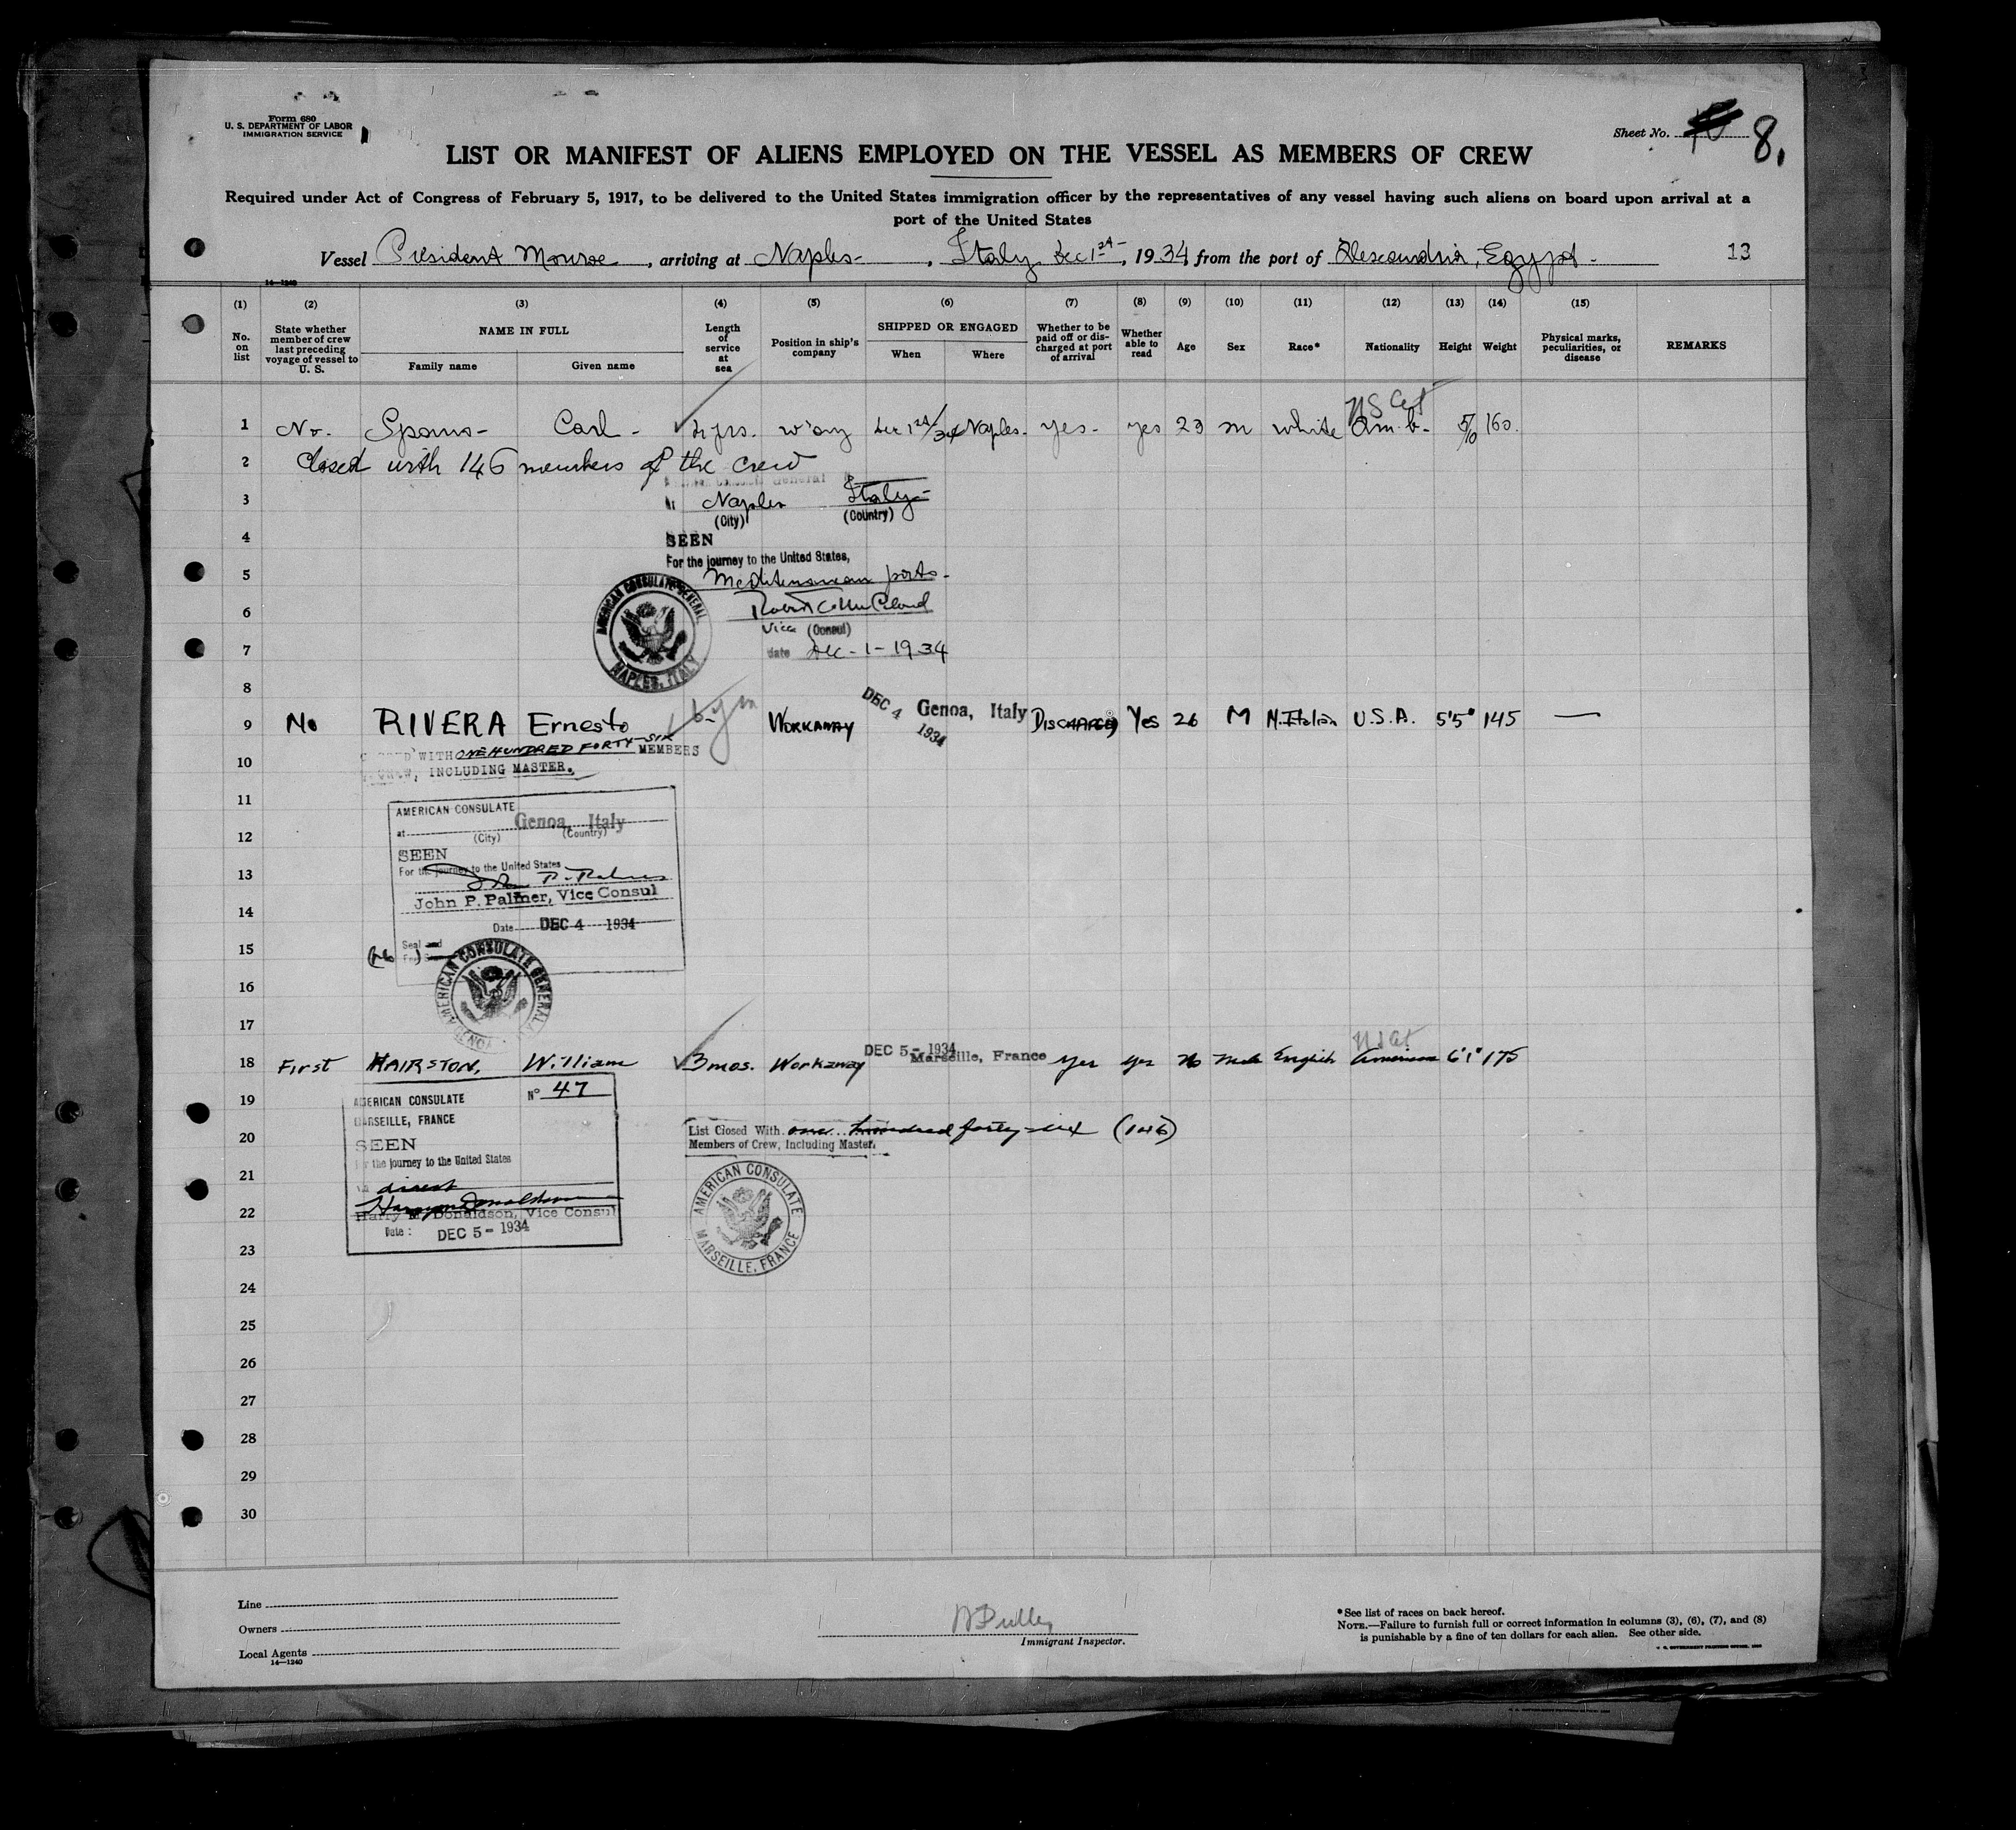 Form 680
U. S. DEPARTMENT OF LABOR
IMMIGRATION SERVICE
Sheet No. 8.
LIST OR MANIFEST OF ALIENS EMPLOYED ON THE VESSEL AS MEMBERS OF CREW
Required under Act of Congress of February 5, 1917, to be delivered to the United States immigration officer by the representatives of any vessel having such aliens on board upon arrival at a
port of the United States
Vessel President Monroe, arriving at Naples-, Italy Dec 1st, 1934, from the port of Alexandria, Egypt- 13
14—1240
(1) (2) (3) (4) (5) (6) (7) (8) (9) (10) (11) (12) (13) (14) (15)
No. on list
State whether member of crew last preceding voyage of vessel to U. S.
NAME IN FULL
Family name Given name
Length of service at sea
Position in ship's company
SHIPPED OR ENGAGED
When Where
Whether to be paid off or discharged at port of arrival
Whether able to read
Age
Sex
Race*
Nationality
Height
Weight
Physical marks, peculiarities, or disease
REMARKS
US Cit
1 No. Carl - yrs. w'away Dec 1st/34 Naples. yes- yes 23 m white Am. b- 5/10 160.
2 Closed with 146 members of the crew
General
3 Naples Italy-
(City) (Country)
4 SEEN
For the journey to the United States,
5 Mediterranean ports-
AMERICAN CONSULATE GENERAL NAPLES, ITALY
6
Vice (Consul)
7 date Dec-1-1934
8
9 No RIVERA Ernesto WORKAWAY DEC 4 1934 Genoa, Italy DISCHARGED Yes 26 M N.Italian U.S.A. 5'5" 145 —
WITH ONE HUNDRED FORTY-SIX MEMBERS
10
CREW, INCLUDING MASTER.
11
AMERICAN CONSULATE
at Genoa, Italy
12 (City) (Country)
SEEN
13 For the journey to the United States
John P. Palmer, Vice Consul
14
Date DEC 4 1934
15 Seal and
AMERICAN CONSULATE GENERAL GENOA
16
17
US Cit
18 First HAIRSTON, William 3 mos. Workaway DEC 5 - 1934 Marseille, France Yes Yes Male English American 6'1" 175
19 AMERICAN CONSULATE N° 47
MARSEILLE, FRANCE
20 SEEN
List Closed With one hundred forty-six (146)
Members of Crew, Including Master.
For the journey to the United States
21 via direct
AMERICAN CONSULATE MARSEILLE, FRANCE
22 Harry M. Donaldson, Vice Consul
Date: DEC 5 - 1934
23
24
25
26
27
28
29
30
Line
Owners
Local Agents
14—1240
Immigrant Inspector.
*See list of races on back hereof.
NOTE.—Failure to furnish full or correct information in columns (3), (6), (7), and (8)
is punishable by a fine of ten dollars for each alien. See other side.